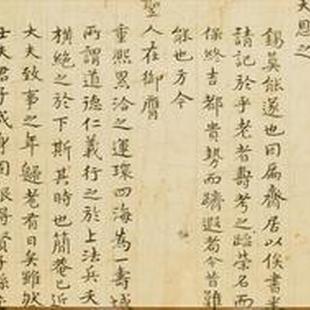 夫恩之
錫莫能遂也因扁齋居以俟書来
請記於乎老者壽考之臨榮名而
保終吉都貴勢而躋遐者令昔難
能也方今
聖人在御膺
重熙累洽之運環四海為一壽域
所謂道德仁義行之於上法兵天
横絶之於下斯其時也簡菴已近
大夫致事之年鯢耄有日矣雖然
士夫君子成身固